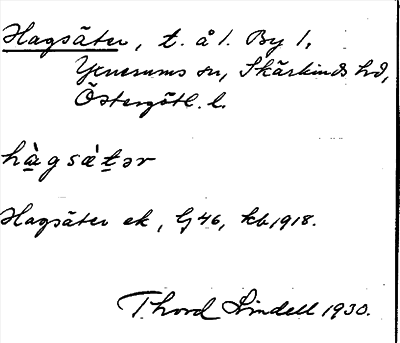 Hagsäter, t. å 1. By 1,
Yxnerums sn, Skärkinds hd,
Östergötl. l.
hàgsætər
Hagsäter ek, Gj 46, kb 1918.
Thord Lindell 1930.